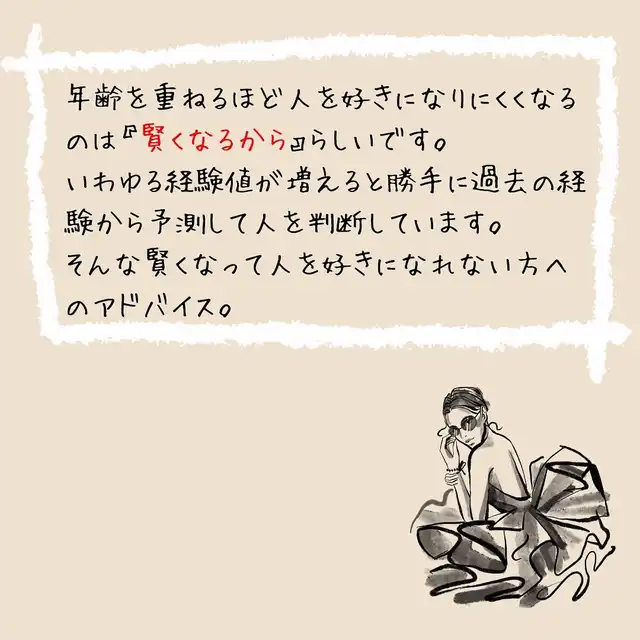 年齢を重ねるほど人を好きになりにくくなる
のは『賢くなるから』らしいです。
いわゆる経験値が増えると勝手に過去の経
験から予測して人を判断しています。
そんな賢くなって人を好きになれない方へ
のアドバイス。